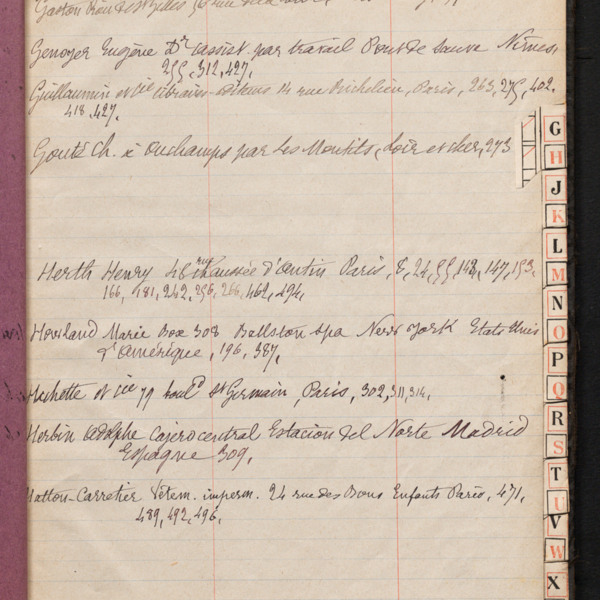 Genoyer Eugène Dr assist. par travail Pont de Sauve Nimes
255, 312, 427,
Guillaumin et Cie 14 rue Richelieu, Paris, 263, 275, 402,
418, 427.
Gouté Ch. à Ouchamps par les Montils, Loir et cher, 273
Herth Henry rue Chaussée d'Antin Paris, 8, 24, 55, 142, 147, 153,
166, 181, 242, 256, 266, 462, 494,
Howland Marie Box 308 Ballston Spa New York Etats Unis
d'Amérique, 196, 387,
Hachette et Cie 79 boul.d St Germain, Paris, 302, 311, 314,
Herbin Adolphe Cajero central Estacion del Norte Madrid
Espagne 309,
Hatton-Carretier Vêtem. imperm. 24 rue des Bons Enfants Paris, 471,
489, 492, 496,
G
H
J
K
L
M
N
O
P
Q
R
S
T
U
V
W
X